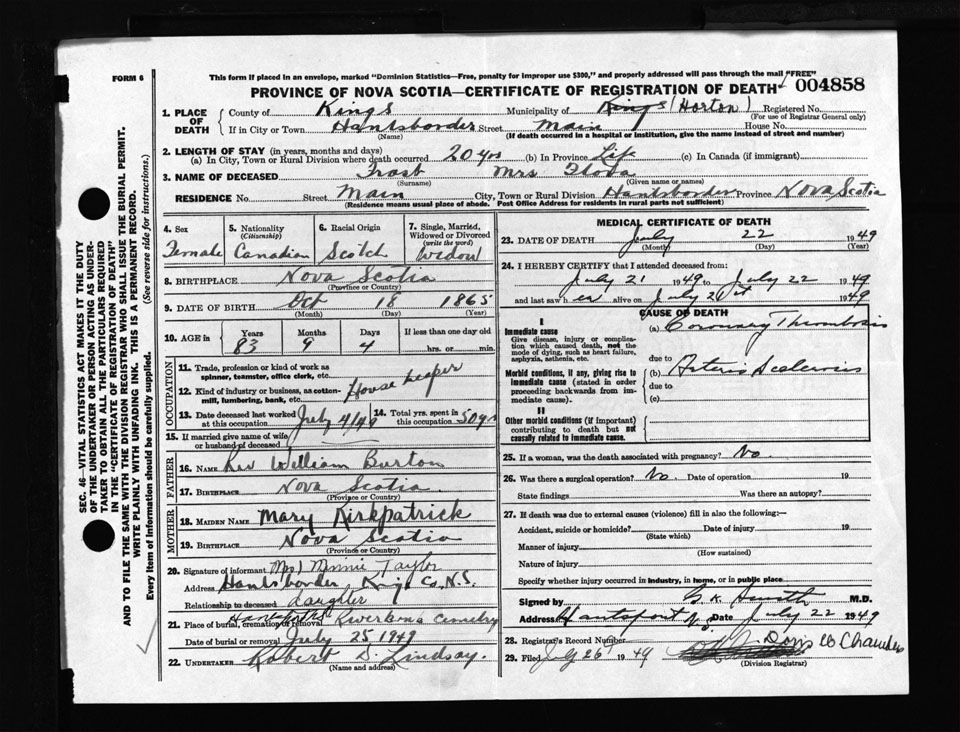 FORM 6
This form if placed in an envelope, marked "Dominion Statistics—Free, penalty for improper use $300," and properly addressed will pass through the mail "FREE"
PROVINCE OF NOVA SCOTIA—CERTIFICATE OF REGISTRATION OF DEATH 004858
1. PLACE OF DEATH
County of Kings Municipality of Kings (Horton) Registered No.
(For use of Registrar General only)
If in City or Town Hantsborder Street Main House No.
(Name) (If death occurred in a hospital or institution, give the name instead of street and number)
2. LENGTH OF STAY (in years, months and days)
(a) In City, Town or Rural Division where death occurred 20 yrs (b) In Province Life (c) In Canada (if immigrant)
3. NAME OF DECEASED Frost Mrs Flora
(Surname) (Given name or names)
RESIDENCE No. Street Main City, Town or Rural Division Hantsborder Province Nova Scotia
(Residence means usual place of abode. Post Office Address for residents in rural parts not sufficient)
4. Sex Female
5. Nationality (Citizenship) Canadian
6. Racial Origin Scotch
7. Single, Married, Widowed or Divorced (write the word) Widow
8. BIRTHPLACE Nova Scotia
(Province or Country)
9. DATE OF BIRTH Oct 18 1865
(Month) (Day) (Year)
10. AGE in Years 83 Months 9 Days 4 If less than one day old hrs. or min.
OCCUPATION
11. Trade, profession or kind of work as spinner, teamster, office clerk, etc.
12. Kind of industry or business, as cotton-mill, lumbering, bank, etc. House keeper
13. Date deceased last worked at this occupation July 4/49
14. Total yrs. spent in this occupation 50 yrs
15. If married give name of wife or husband of deceased
FATHER
16. NAME Rev William Burton
17. BIRTHPLACE Nova Scotia
(Province or Country)
MOTHER
18. MAIDEN NAME Mary Kirkpatrick
19. BIRTHPLACE Nova Scotia
(Province or Country)
20. Signature of informant Mrs) Minnie Taylor
Address Hantsborder Kings Co, N.S.
Relationship to deceased daughter
21. Place of burial, cremation or removal Hantsport Riverbank Cemetry
Date of burial or removal July 25 1949
22. UNDERTAKER Robert D. Lindsay.
(Name and address)
MEDICAL CERTIFICATE OF DEATH
23. DATE OF DEATH July 22 1949
(Month) (Day) (Year)
24. I HEREBY CERTIFY that I attended deceased from:
July 21 1949 to July 22 1949
and last saw her alive on July 21st 1949
CAUSE OF DEATH
I
Immediate cause
Give disease, injury or complication which caused death, not the mode of dying, such as heart failure, asphyxia, asthenia, etc.
(a) Coronary Thrombosis
due to
Morbid conditions, if any, giving rise to immediate cause (stated in order proceeding backwards from immediate cause).
(b) Arterio Sclerosis
due to
(c)
II
Other morbid conditions (if important) contributing to death but not causally related to immediate cause.
25. If a woman, was the death associated with pregnancy? No.
26. Was there a surgical operation? No. Date of operation 19
State findings Was there an autopsy?
27. If death was due to external causes (violence) fill in also the following:—
Accident, suicide or homicide? Date of injury 19
(State which)
Manner of injury
(How sustained)
Nature of injury
Specify whether injury occurred in industry, in home, or in public place
Signed by G. K. Smith M.D.
Address Hantsport N.S. Date July 22 1949
28. Registrar's Record Number
29. Filed July 26 1949 Doris
(Division Registrar)
SEC. 46—VITAL STATISTICS ACT MAKES IT THE DUTY
OF THE UNDERTAKER OR PERSON ACTING AS UNDER-
TAKER TO OBTAIN ALL THE PARTICULARS REQUIRED
IN THE "CERTIFICATE OF REGISTRATION OF DEATH"
AND TO FILE THE SAME WITH THE DIVISION REGISTRAR WHO SHALL ISSUE THE BURIAL PERMIT.
WRITE PLAINLY WITH UNFADING INK. THIS IS A PERMANENT RECORD.
Every item of information should be carefully supplied. (See reverse side for instructions.)